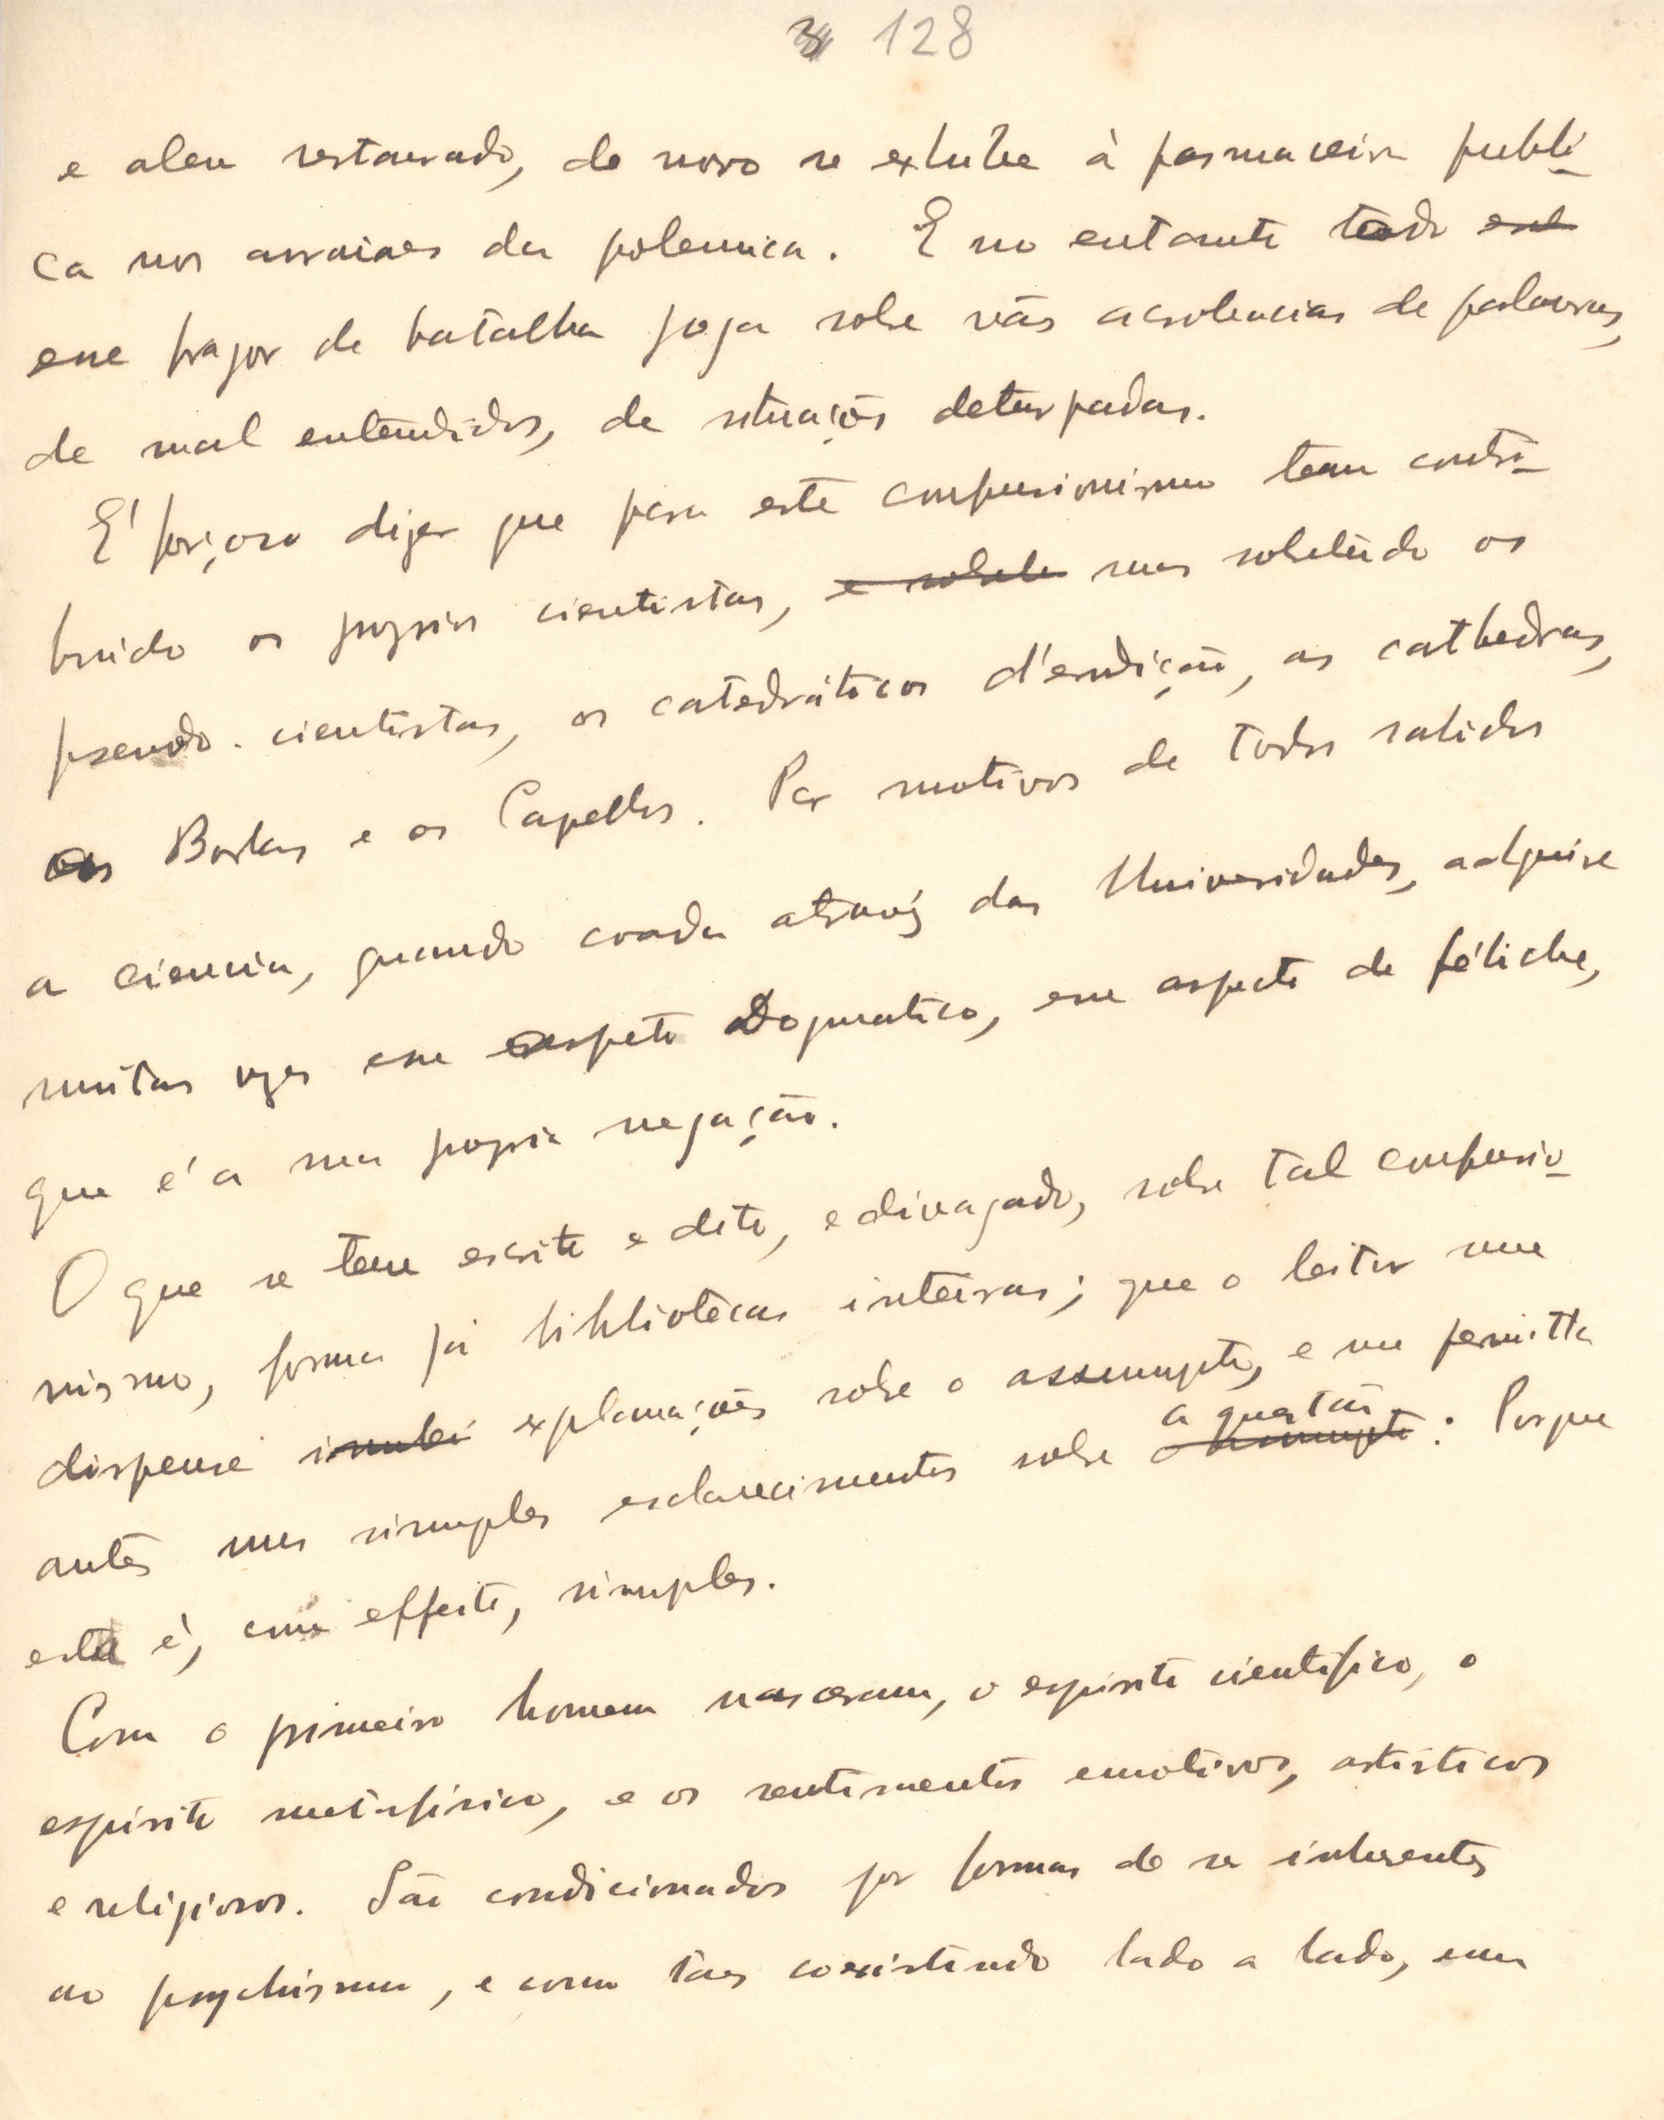 3 128
e alem restaurado, de novo se exhibe à pasmaceira publi-
ca nos arraiaes da polemica. E no entanto todo
esse fragor de batalha joga sobre vãs de palavras,
de mal entendidos, de situações deturpadas.
E' forçoso dizer que para este confusionismo tem contri-
buido os proprios cientistas, e sobretu mas sobretudo os
pseudo-cientistas, os catedráticos d'erudição, as cathedras,
as Borlas e os Capellos. Por motivos de todos sabidos
a ciencia, quando coada atravéz das Universidades, adquire
muitas vezes esse aspeto Dogmatico, esse aspecto de fétiche,
que é a sua propria negação.
O que se tem escrito e dito, e divagado, sobre tal confusio-
nismo, forma já bibliotecas inteiras; que o leitor me
dispense explanações sobre o assumpto, e me permitta
a questão
antes uns simples esclarecimentos sobre o assumpto: Porque
esta é, com effeito, simples.
Com o primeiro homem nasceram, o espirito cientifico, o
espirito metafisico, e os sentimentos emotivos, artisticos
e religiosos. São condicionados por formas de ser inherentes
ao psychismo, e como taes coexistindo lado a lado, em